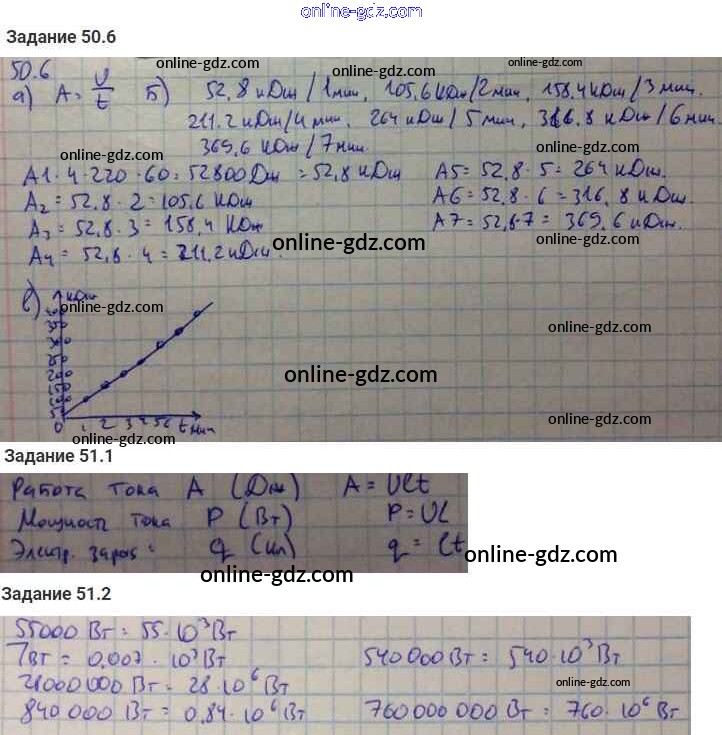 online-gdz.com
Задание 50.6
50.6
а) A = U/t Б) 52,8 кДж/1мин, 105,6 кДж/2мин, 158,4 кДж/3 мин.
211.2 кДж/4 мин, 264 кДж/5 мин, 316,8 кДж/6 мин
369,6 кДж/7 мин
online-gdz.com
online-gdz.com
A1 · 4 · 220 · 60 = 52800 Дж = 52,8 кДж A5 = 52,8 · 5 = 264 кДж.
A2 = 52,8 · 2 = 105,6 кДж A6 = 52,8 · 6 = 316,8 кДж.
A3 = 52,8 · 3 = 158,4 кДж A7 = 52,8 · 7 = 369,6 кДж.
A4 = 52,8 · 4 = 211,2 кДж.
online-gdz.com
online-gdz.com
online-gdz.com
online-gdz.com
в) кДж
online-gdz.com
online-gdz.com
online-gdz.com
350
300
250
200
150
100
50
0 1 2 3 4 5 6 t мин
online-gdz.com
online-gdz.com
Задание 51.1
Работа тока A (Дж) A = UIt
Мощность тока P (Вт) P = UI
Электр. заряд: q (Кл) q = It
online-gdz.com
online-gdz.com
Задание 51.2
55000 Вт = 55 · 10³ Вт
7 Вт = 0,007 · 10³ Вт 540 000 Вт = 540 · 10³ Вт
28000 000 Вт = 28 · 10⁶ Вт
840 000 Вт = 0,84 · 10⁶ Вт 760 000 000 Вт = 760 · 10⁶ Вт
online-gdz.com
online-gdz.com